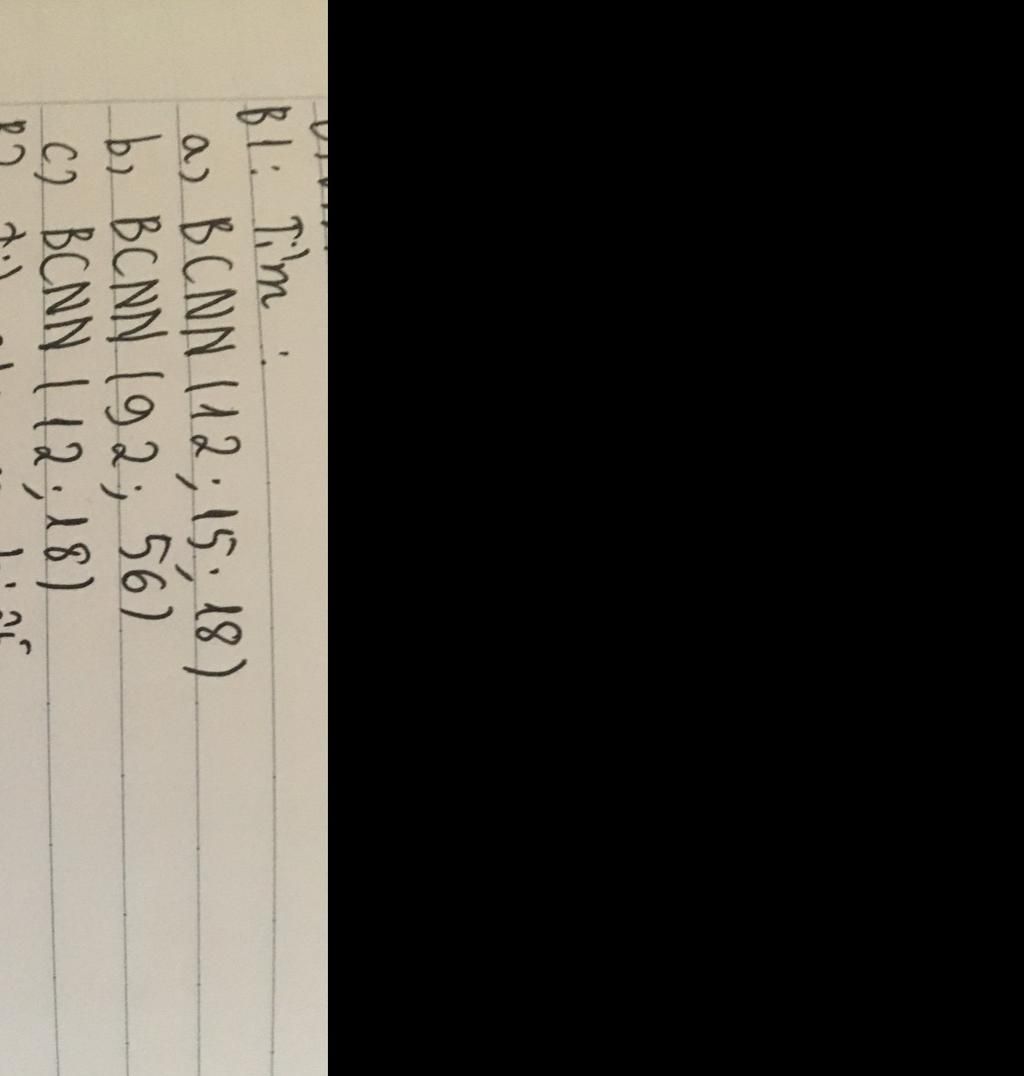 B1: Tìm :
a) BCNN (12; 15; 18)
b) BCNN (92; 56)
c) BCNN (12; 18)